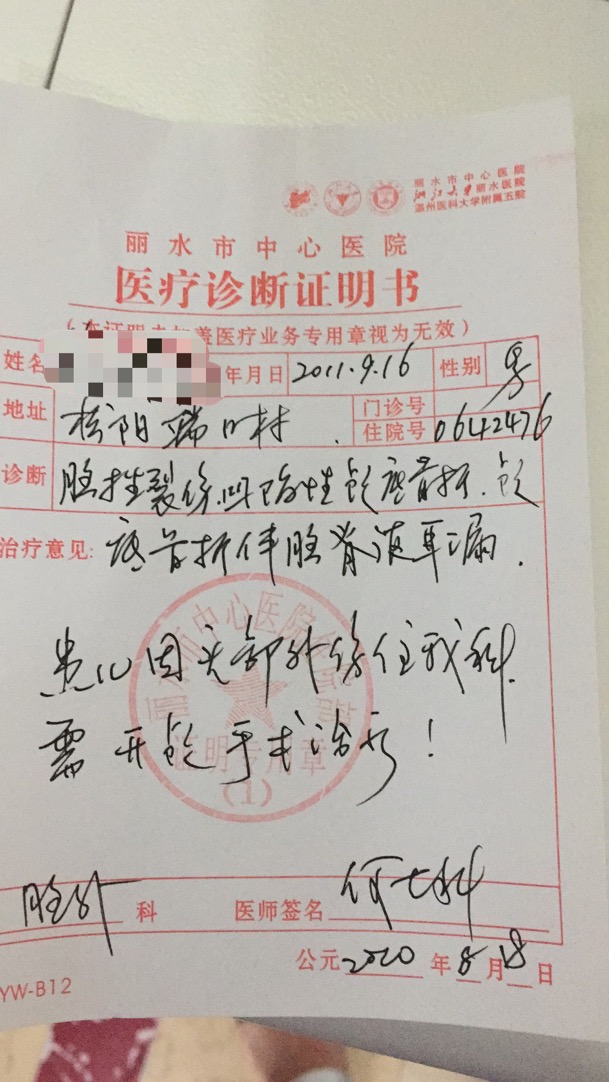 丽水市中心医院
浙江大学丽水医院
温州医科大学附属五院
丽水市中心医院
医疗诊断证明书
盖医疗业务专用章视为无效)
姓名 年月日 2011.9.16 性别 男
地址 松阳 村. 门诊号
住院号 0642476
诊断 脑挫裂伤.凹陷性颅底骨折.颅
治疗意见: 底骨折伴脑脊液耳漏.
患儿因头部外伤住我科.
需开颅手术治疗!
丽水市中心医院
证明专用章
(1)
脑外 科 医师签名 何
公元 2020 年 8 月 18 日
YW-B12